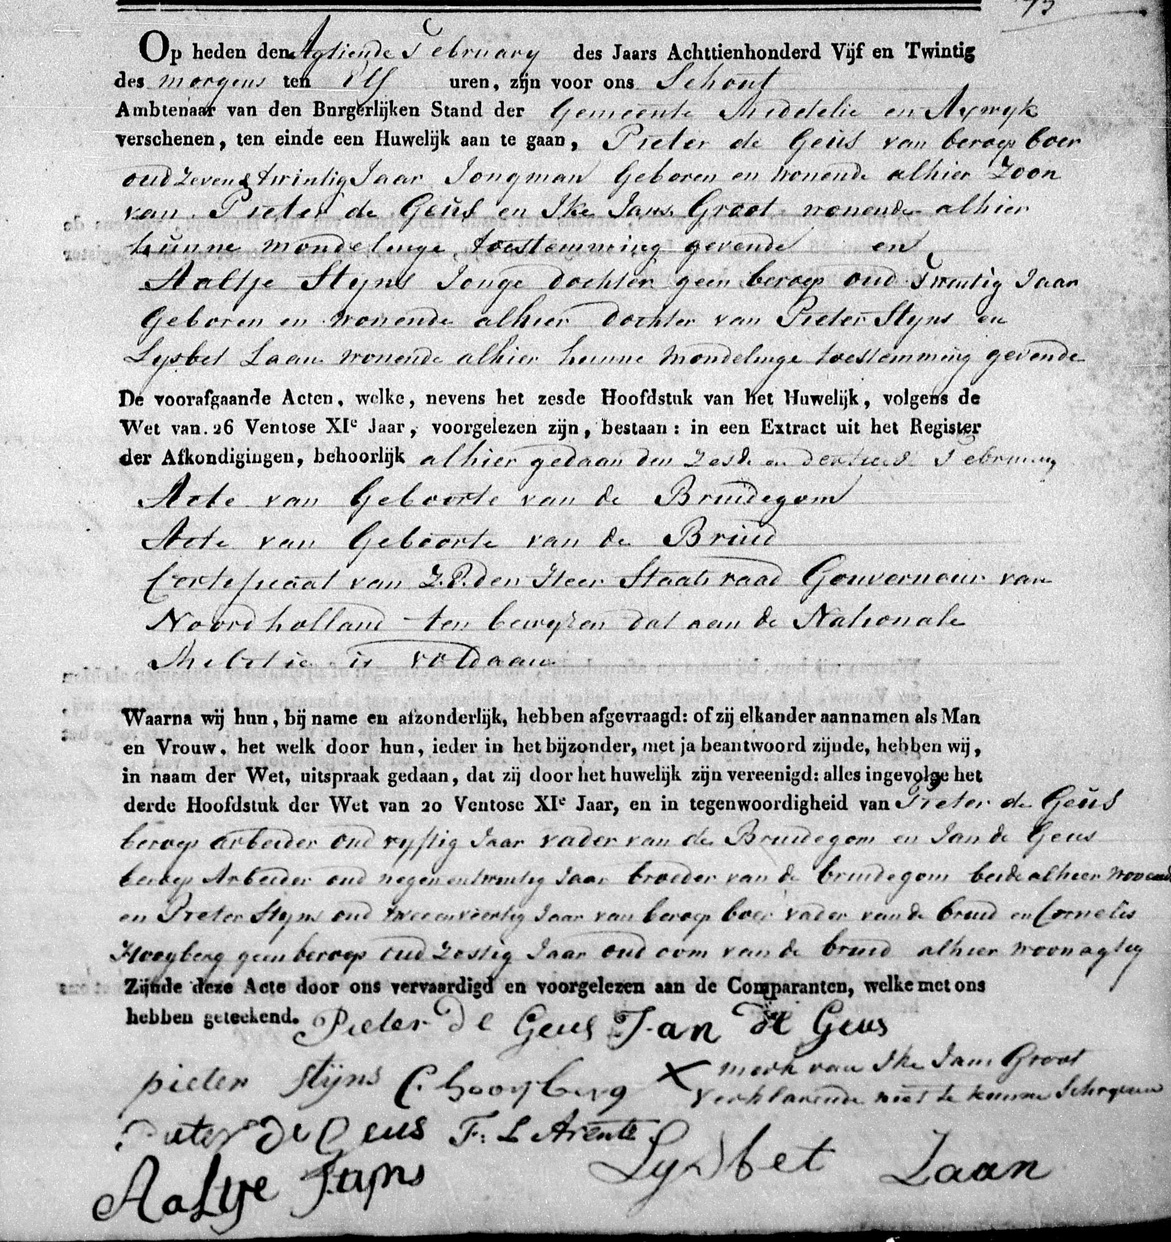 Op heden den Agtiende February des Jaars Achttienhonderd Vijf en Twintig
des morgens ten Elf uren, zijn voor ons Schout
Ambtenaar van den Burgerlijken Stand der Gemeente Middelie en Axwyk
verschenen, ten einde een Huwelijk aan te gaan, Pieter de Geus van beroep boer
oud Zeven & twintig Jaar Jongman Geboren en wonende alhier Zoon
van Pieter de Geus en Ike Jans Groot wonende alhier
hunne mondelinge toestemming gevende en
Aaltje Styns Jonge dochter geen beroep oud Twintig Jaar
Geboren en wonende alhier dochter van Pieter Styns en
Lysbet Laan wonende alhier hunne mondelinge toestemming gevende
De voorafgaande Acten, welke, nevens het zesde Hoofdstuk van het Huwelijk, volgens de
Wet van. 26 Ventose XIe Jaar, voorgelezen zijn, bestaan: in een Extract uit het Register
der Afkondigingen, behoorlijk alhier gedaan den Zesde en dertiende February
Acte van Geboorte van de Bruidegom
Acte van Geboorte van de Bruid
Certificaat van Z.E. den Heer Staatsraad Gouverneur van
Noordholland ten bewyzen dat aan de Nationale
Militie is voldaan
Waarna wij hun, bij name en afzonderlijk, hebben afgevraagd: of zij elkander aannamen als Man
en Vrouw, het welk door hun, ieder in het bijzonder, met ja beantwoord zijnde, hebben wij,
in naam der Wet, uitspraak gedaan, dat zij door het huwelijk zijn vereenigd: alles ingevolge het
derde Hoofdstuk der Wet van 20 Ventose XIe Jaar, en in tegenwoordigheid van Pieter de Geus
beroep arbeider oud vyftig Jaar vader van de Bruidegom en Jan de Geus
beroep Arbeider oud negenentwintig Jaar broeder van de bruidegom beide alhier
en Pieter Styns oud tweeenveertig Jaar van beroep boer vader van de bruid en Cornelis
Hooyberg geen beroep oud Zestig Jaar oud oom van de bruid alhier woonagtig
Zijnde deze Acte door ons vervaardigd en voorgelezen aan de Comparanten, welke met ons
hebben geteekend. Pieter de Geus Jan de Geus
pieter styns C hooyberg X merk van Ike Jans Groot
verklarende niet te kunnen Schryven
Pieter de Geus
Aaltje Styns Lysbet Laan